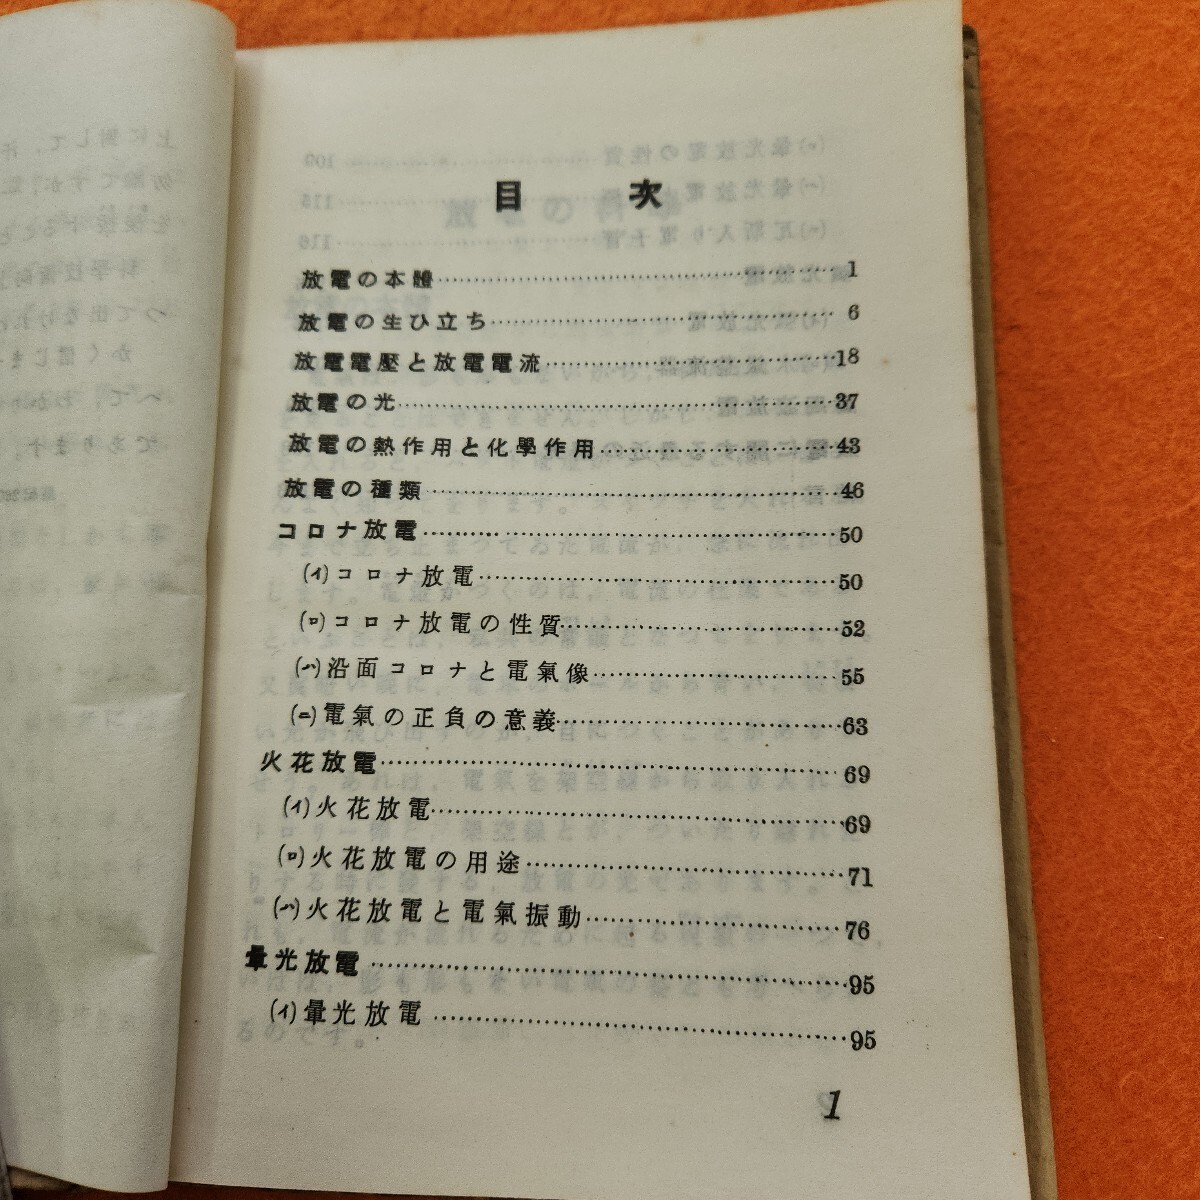 目 次
放電の本體 1
放電の生ひ立ち 6
放電電壓と放電電流 18
放電の光 37
放電の熱作用と化學作用 43
放電の種類 46
コロナ放電 50
(イ)コロナ放電 50
(ロ)コロナ放電の性質 52
(ハ)沿面コロナと電氣像 55
(ニ)電氣の正負の意義 63
火花放電 69
(イ)火花放電 69
(ロ)火花放電の用途 71
(ハ)火花放電と電氣振動 76
暈光放電 95
(イ)暈光放電 95
1